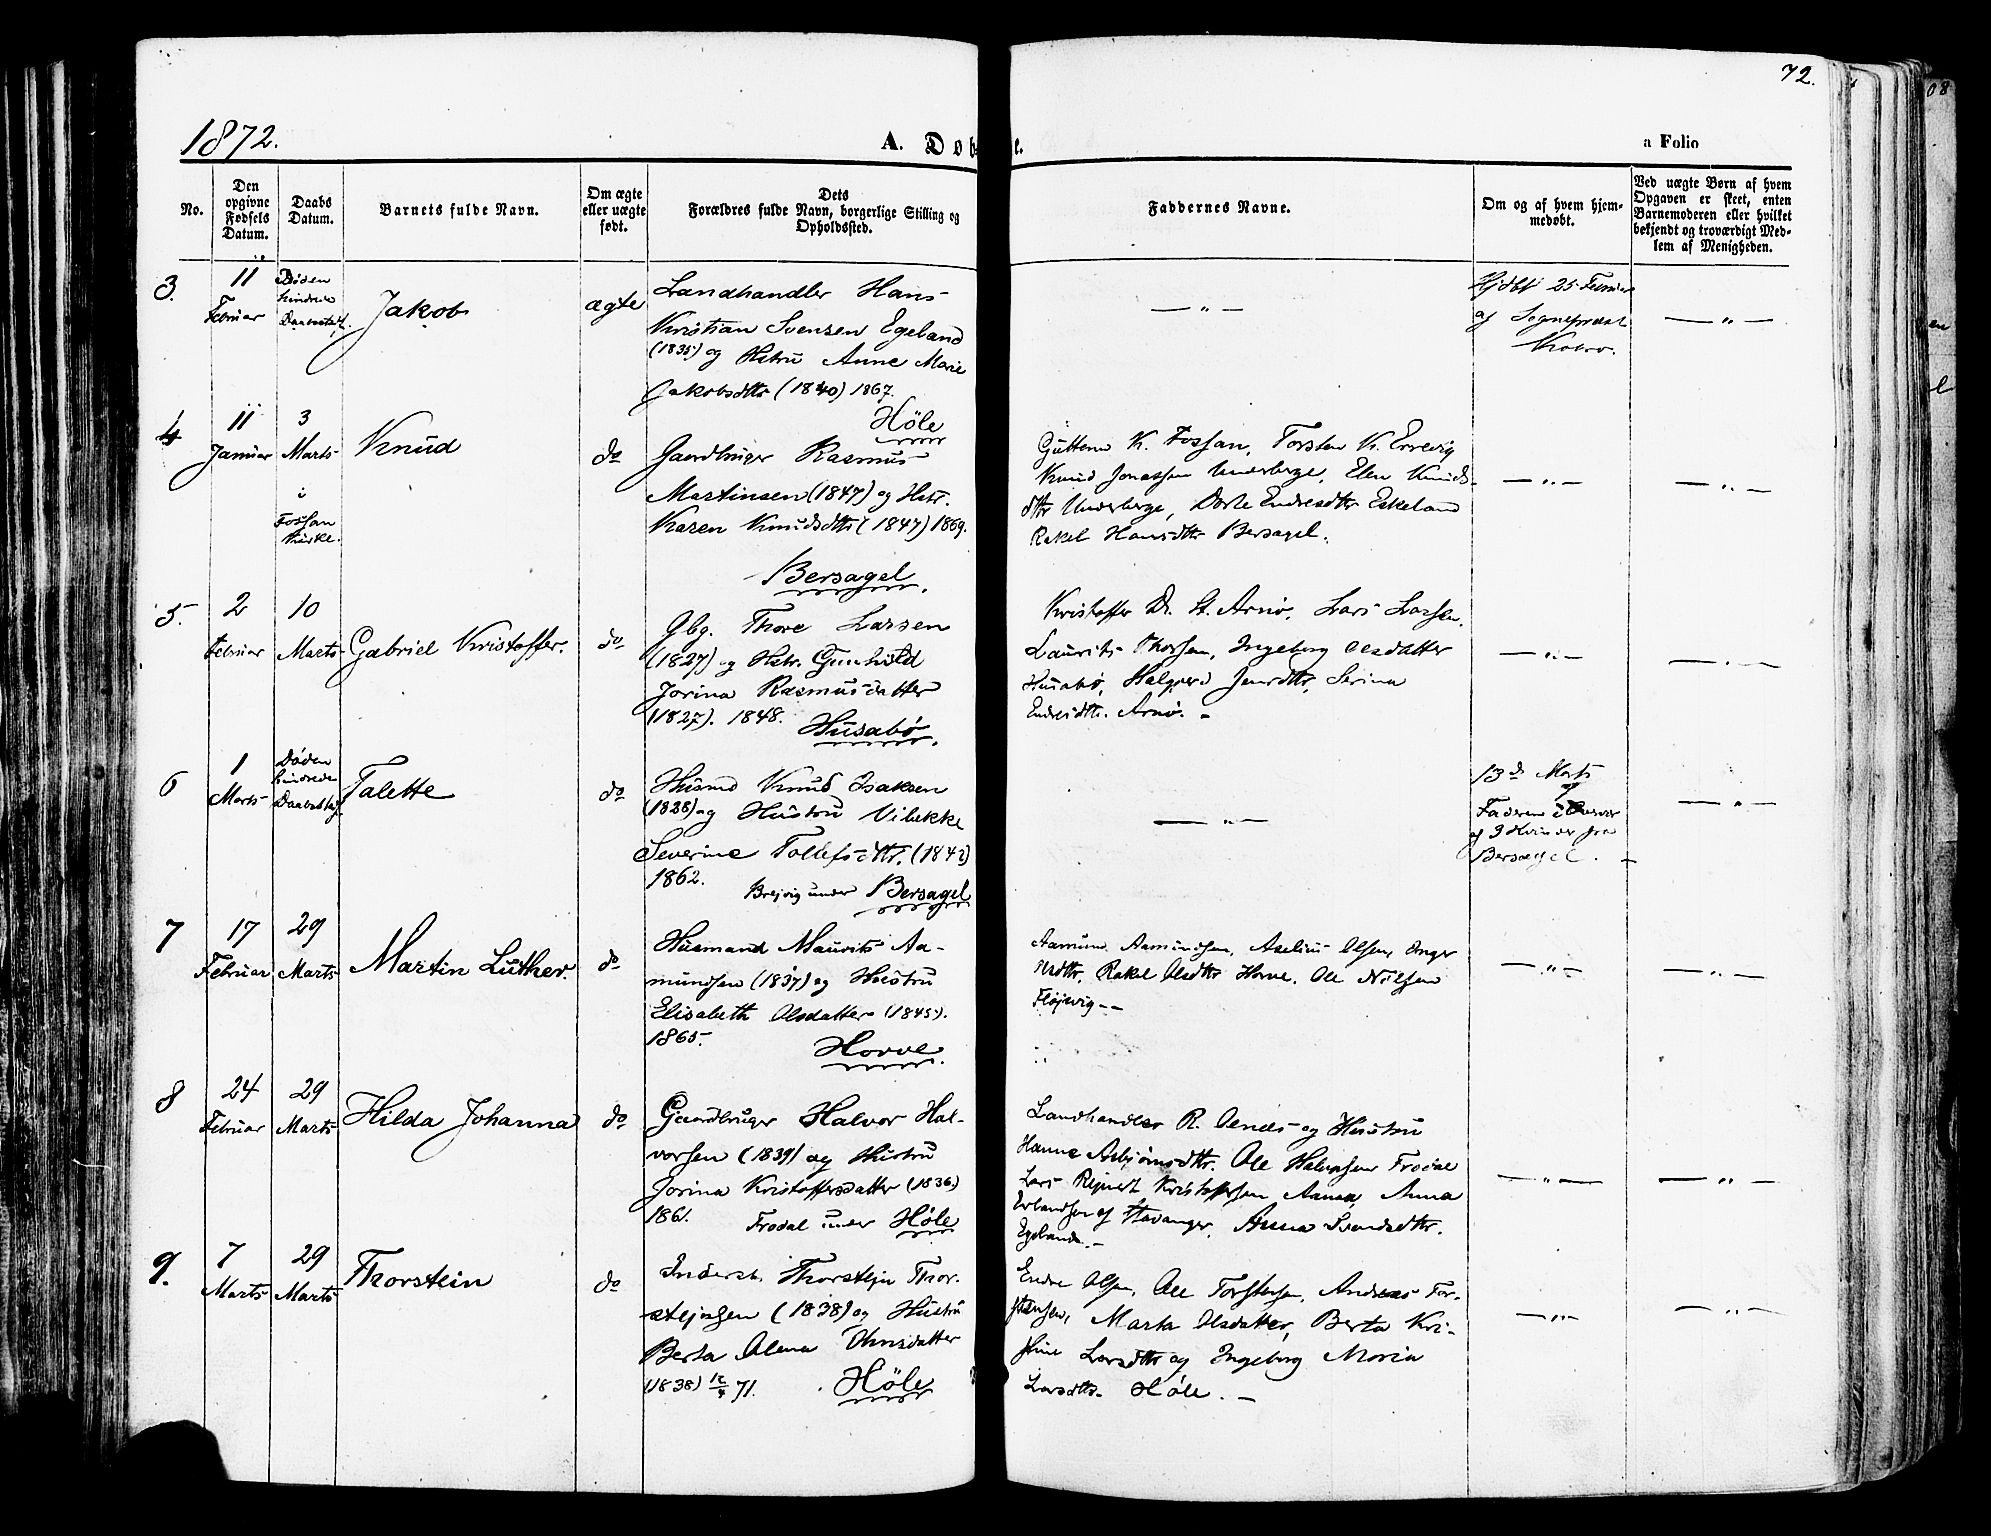 72.
1872.
A. Døb
e.
a Folio
No.
Den opgivne Fødsels Datum.
Daabs Datum.
Barnets fulde Navn.
Om ægte eller uægte født.
Dets Forældres fulde Navn, borgerlige Stilling og Opholdssted.
Faddernes Navne.
Om og af hvem hjemmedøbt.
Ved uægte Børn af hvem Opgaven er skeet, enten Barnemoderen eller hvilket bekjendt og troværdigt Medlem af Menigheden.
3.
11 Februar
Døden hindrede Daabstaf.
Jakob
ægte
Landhandler Hans
Kristian Svensen Egeland
(1835) og Hstru Anne Marie
Jakobsdttr (1840) 1867.
Höle
— " —
Hjdbt 25 Februar
af Sognepræst
— " —
4
11 Januar
3 Marts i Fossan Kirke.
Knud
do
Gaardbruger Rasmus
Martinsen (1847) og Hstr.
Karen Knudsdttr (1847) 1869.
Bersagel.
Guttorm K. Fossan, Torsten K. Errevig
Knud Jonassen Underberge, Elen Knuds-
dttr Underberge, Dorte Endresdttr Eskeland
Rakel Hansdttr Bersagel.
— " —
— " —
5.
2 Februar
10 Marts
Gabriel Kristoffer.
do
Gbg. Thore Larsen
(1827) og Hstr. Gunhild
Jorina Rasmusdatter
(1827). 1848.
Husabø.
Kristoffer Arnø, Lars Larsen,
Laurits Thorsen, Ingeborg Olsdatter
Husabø, Jensdttr, Serina
Endresdttr. Arnø. –
— " —
— " —
6
1 Marts
Døden hindrede Daabstaf.
Talette
do
Husmd Knud Isaksen
(1828) og Hustru Vibekke
Severine Tollefsdttr. (1842)
1862.
Brejvig under Bersagel
— " —
13de Marts
af
Faderen i
af 3 Kvinder fra
Bersagel. –
— " —
7
17 Februar
29 Marts
Martin Luther.
do
Husmand Maurits Aa-
mundsen (1837) og Hustru
Elisabeth Olsdatter (1845).
1865.
Horve.
Aamund Aamundsen, Aselius Olsen, Inger
Olsdttr, Rakel Olsdttr Horve. Ole Nilsen
Fløjevig. –
— " —
— " —
8
24 Februar
29 Marts
Hilda Johanna
do
Gaardbruger Halvor Hal-
vorsen (1839) og Hustru
Jorina Kristoffersdatter (1836)
1861.
Frodal under Höle
Landhandler R. og Hustru
Hanne Asbjörnsdttr. Ole Halvorsen Frodal
Lars Rejnert Kristoffersen Anna
Erlandsen af Stavanger, Anna Svendsdttr.
Egeland. –
— " —
— " —
9.
7 Marts
29 Marts
Thorstein
do
Inderst. Thorstejn Thor-
stejnsen (1838) og Hustru
Berta Olena
(1838) 71.
Höle
Endre Olsen, Ole Torstensen, Andreas Tor-
stensen, Marta Olsdatter, Berta Kri-
stine Larsdttr og Ingeborg Maria
Larsdttr. Höle. –
— " —
— " —